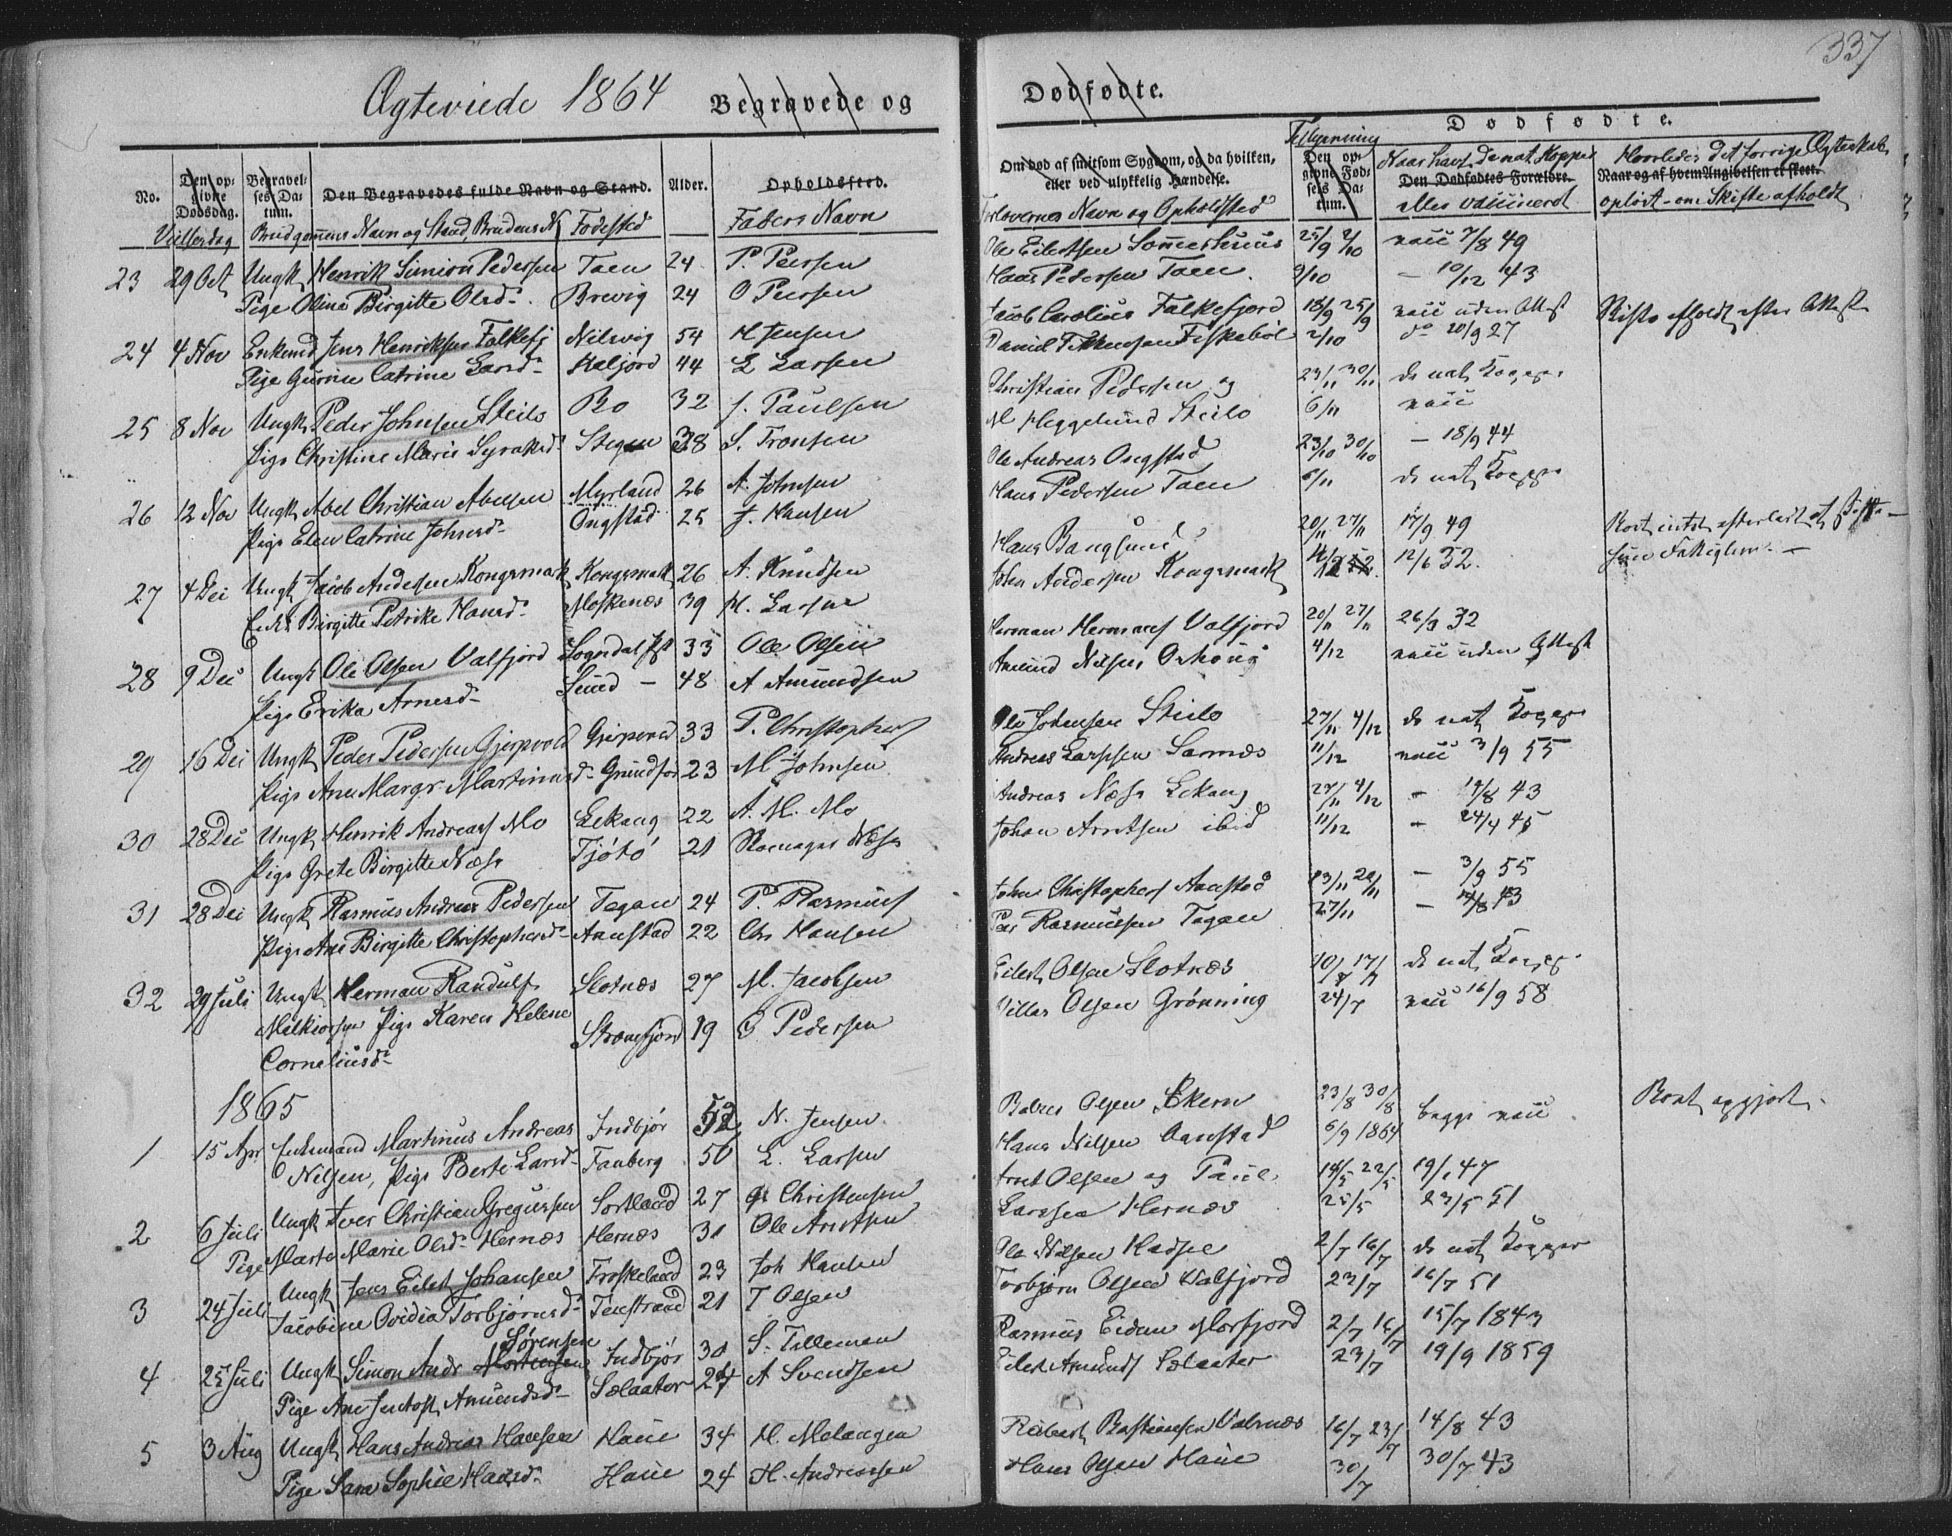 337
Ægteviede 1864 Begravede og
Dødfødte.
No. Den opgivne Dødsdag. Begravelses Datum. Den Begravedes fulde Navn og Stand. Alder. Opholdssted.
Vielsesdag Brudgommens Navn og Stand, Brudens N Fødested Faders Navn
23 29 Oct Ungk Henrik Simion Pedersen Taen 24 P. Peersen
Pige Oline Birgitte Olsd. Brevig 24 O Peersen
24 4 Nov Enkemd Jens Henriksen Falkefj 54 H Jensen
Pige Gurine Catrine Larsd. Kaljord 44 L Larsen
25 8 Nov Ungk Peder Johnsen Steilo Bo 32 J. Paulsen
Pige Christine Marie Stegen 38 S. Tronsen
26 12 Nov Ungk Abel Christian Abelsen Myrland 26 A. Johnsen
Pige Elen Catrine Johnsd. Ongstad 25 J. Hansen
27 4 Dec Ungk Jacob Andersen Kongsmark Kongsmark 26 A. Knudsen
Birgitte Petrike Hansd. Moskenæs 39 H. Larsen
28 9 Dec Ungk Ole Olsen Valfjord Sogndal 33 Ole Olsen
Pige Erika Arnesd. 48 A Amundsen
29 16 Dec Ungk Peder Pedersen Gjerpvold 33 P. Christophers
Pige Ane Margr Martinusd. Grundfør 23 M Johnsen
30 28 Dec Ungk Henrik Andreas Mo Lekang 22 A. M. Mo
Pige Grete Birgitte Næss Tjøtø 21
31 28 Dec Ungk Rasmus Andreas Pedersen Tegan 24 P. Rasmus
Pige Ane Birgitte Christophersd. Aanstad 22 Chr Hansen
32 29 Juli Ungk Herman Randulf Slotnæs 27 M. Jacobsen
Melkiorsen Pige Karen Helene Straumfjord 19 C Pedersen
Corneliusd.
1865
1 15 Apr Enkemand Martinus Andreas Indbjør 52 N. Jensen
Nilsen, Pige Berte Larsd. Fauberg 50 L. Larsen
2 6 Juli Ungk Iver Christian Gregusen Sortland 27 Christensen
Pige Marte Marie Olsd. Hernæs Hernæs 31 Ole Arntsen
3 24 Juli Ungk Jens Eilert Johansen Froskeland 23 Joh Hansen
Jacobine Ovidia Torbjørnsd. Tenstrand 21 T Olsen
Sørensen
4 25 Juli Ungk Simon Andr Mortensen Indbjør 30 S. Tilleman
Pige Ane Amundsd. Sælaater 24 A Svendsen
5 3 Aug Ungk Hans Andreas Hansen Haue 34 H. Melangen
Pige Sara Sophie Hansd. Haue 24 H. Andreassen
Tillysning
Dødfødte.
Om død af smitsom Sygdom, og da hvilken, eller ved ulykkelig Hændelse. Den opgivne Fødsels Datum. Den Dødfødtes Forældre. Naar og af hvem Angivelsen er skeet.
Naar havt de nat. Kopper eller vaccineret
Hvorledes det forrige Ægteskab opløst - om Skifte afholdt
Forloverens Navn og Opholdsted
Ole Eilertsen Sommerhuus 25/9 2/10 vacc 7/8 49
Hans Pedersen Taen 9/10 – 10/12 43
Jacob Carolius Falkefjord 18/9 25/9 vacc uden Attest Skifte afholdt efter Attest
Daniel Fiskebøl 2/10 do 20/9 27
Christian Pedersen og 23/11 30/11 de nat Kopper
M Heggelund Steilo 6/11 vacc
Ole Andreas Ongstad 23/10 30/10 – 18/9 44
Hans Pedersen Taen 6/11 de nat Kopper
Hans Bangsund 20/11 27/11 17/9 49
John Andersen Kongsmark 12/6 32.
Herman Hermans Valfjord 20/11 27/11 26/3 32
Amund Nilsen 4/12 vacc uden Attest
Ole Johnsen Steilo 27/11 4/12 de nat Kopper
Andreas Larssen Sarnæs 11/12 vacc 3/9 55
Andreas Næss Lekang 27/11 4/12 – 14/8 43
Johan Arntsen ibid 11/12 – 24/4 45
John Christophers Aanstad 13/11 20/11 – 3/9 55
Peer Rasmussen Tegan 27/11 – 14/8 43
Eilert Olsen Slotnæs 10/7 17/7 de nat Kopper
Olsen Grønning 24/7 vacc 16/9 58
Olsen Skern 23/8 30/8 begge vacc Boet opgjort.
Hans Nilsen Aanstad 6/9 1864
Arnt Olsen og Paul 14/5 22/5 19/1 47
Larsen Hernæs 25/5 23/5 51
Ole Nilsen Hadsel 2/7 16/7 de nat Kopper
Torbjørn Olsen Valfjord 23/7 16/7 51
Rasmus Eidem Morfjord 2/7 16/7 15/7 1843
Eilert Amunds Sælaater 23/7 19/9 1859
Robert Bastiansen Valnæs 16/7 23/7 14/8 43
Hans Olsen Haue 30/7 30/7 43